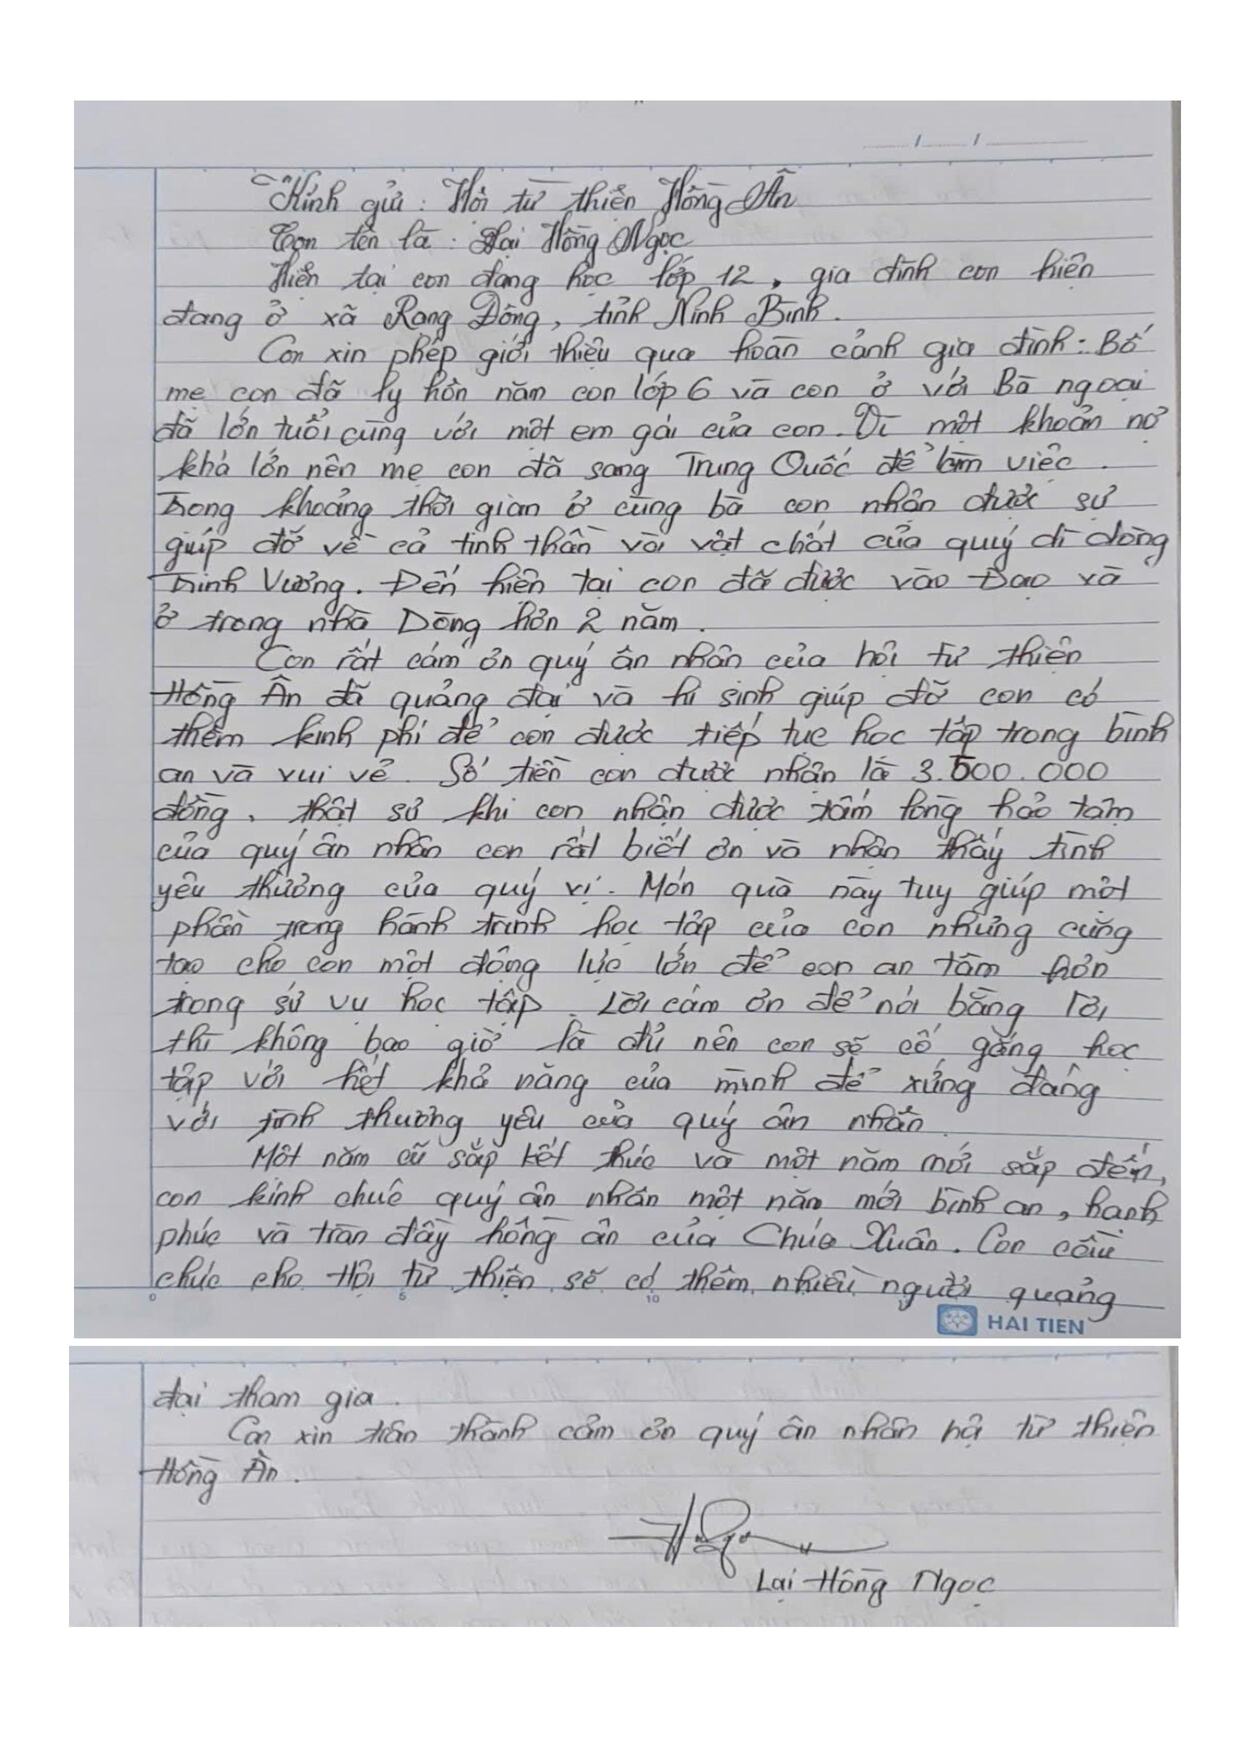 Kính gửi: Hội từ thiện Hồng Ân
Con tên là: Lại Hồng Ngọc
Hiện tại con đang học lớp 12, gia đình con hiện
đang ở xã Rạng Đông, tỉnh Ninh Bình.
Con xin phép giới thiệu qua hoàn cảnh gia đình: Bố
mẹ con đã ly hôn năm con lớp 6 và con ở với Bà ngoại
đã lớn tuổi cùng với một em gái của con. Vì một khoản nợ
khá lớn nên mẹ con đã sang Trung Quốc để làm việc.
Trong khoảng thời gian ở cùng bà con nhận được sự
giúp đỡ về cả tinh thần với vật chất của quý dì dòng
Trinh Vương. Đến hiện tại con đã được vào Đạo và
ở trong nhà Dòng hơn 2 năm.
Con rất cám ơn quý ân nhân của hội từ thiện
Hồng Ân đã quảng đại và hi sinh giúp đỡ con có
thêm kinh phí để con được tiếp tục học tập trong bình
an và vui vẻ. Số tiền con được nhận là 3.500.000
đồng, thật sự khi con nhận được tấm lòng hảo tâm
của quý ân nhân con rất biết ơn và nhận thấy tình
yêu thương của quý vị. Món quà này tuy giúp một
phần trong hành trình học tập của con nhưng cũng
tạo cho con một động lực lớn để con an tâm hơn
trong sứ vụ học tập. Lời cám ơn để nói bằng lời
thì không bao giờ là đủ nên con sẽ cố gắng học
tập với hết khả năng của mình để xứng đáng
với tình thương yêu của quý ân nhân
Một năm cũ sắp kết thúc và một năm mới sắp đến,
con kính chúc quý ân nhân một năm mới bình an, hạnh
phúc và tràn đầy hồng ân của Chúa Xuân. Con cầu
chúc cho Hội từ thiện sẽ có thêm nhiều người quảng
HAI TIEN
đại tham gia.
Con xin trân thành cảm ơn quý ân nhân hội từ thiện
Hồng Ân.
Lại Hồng Ngọc